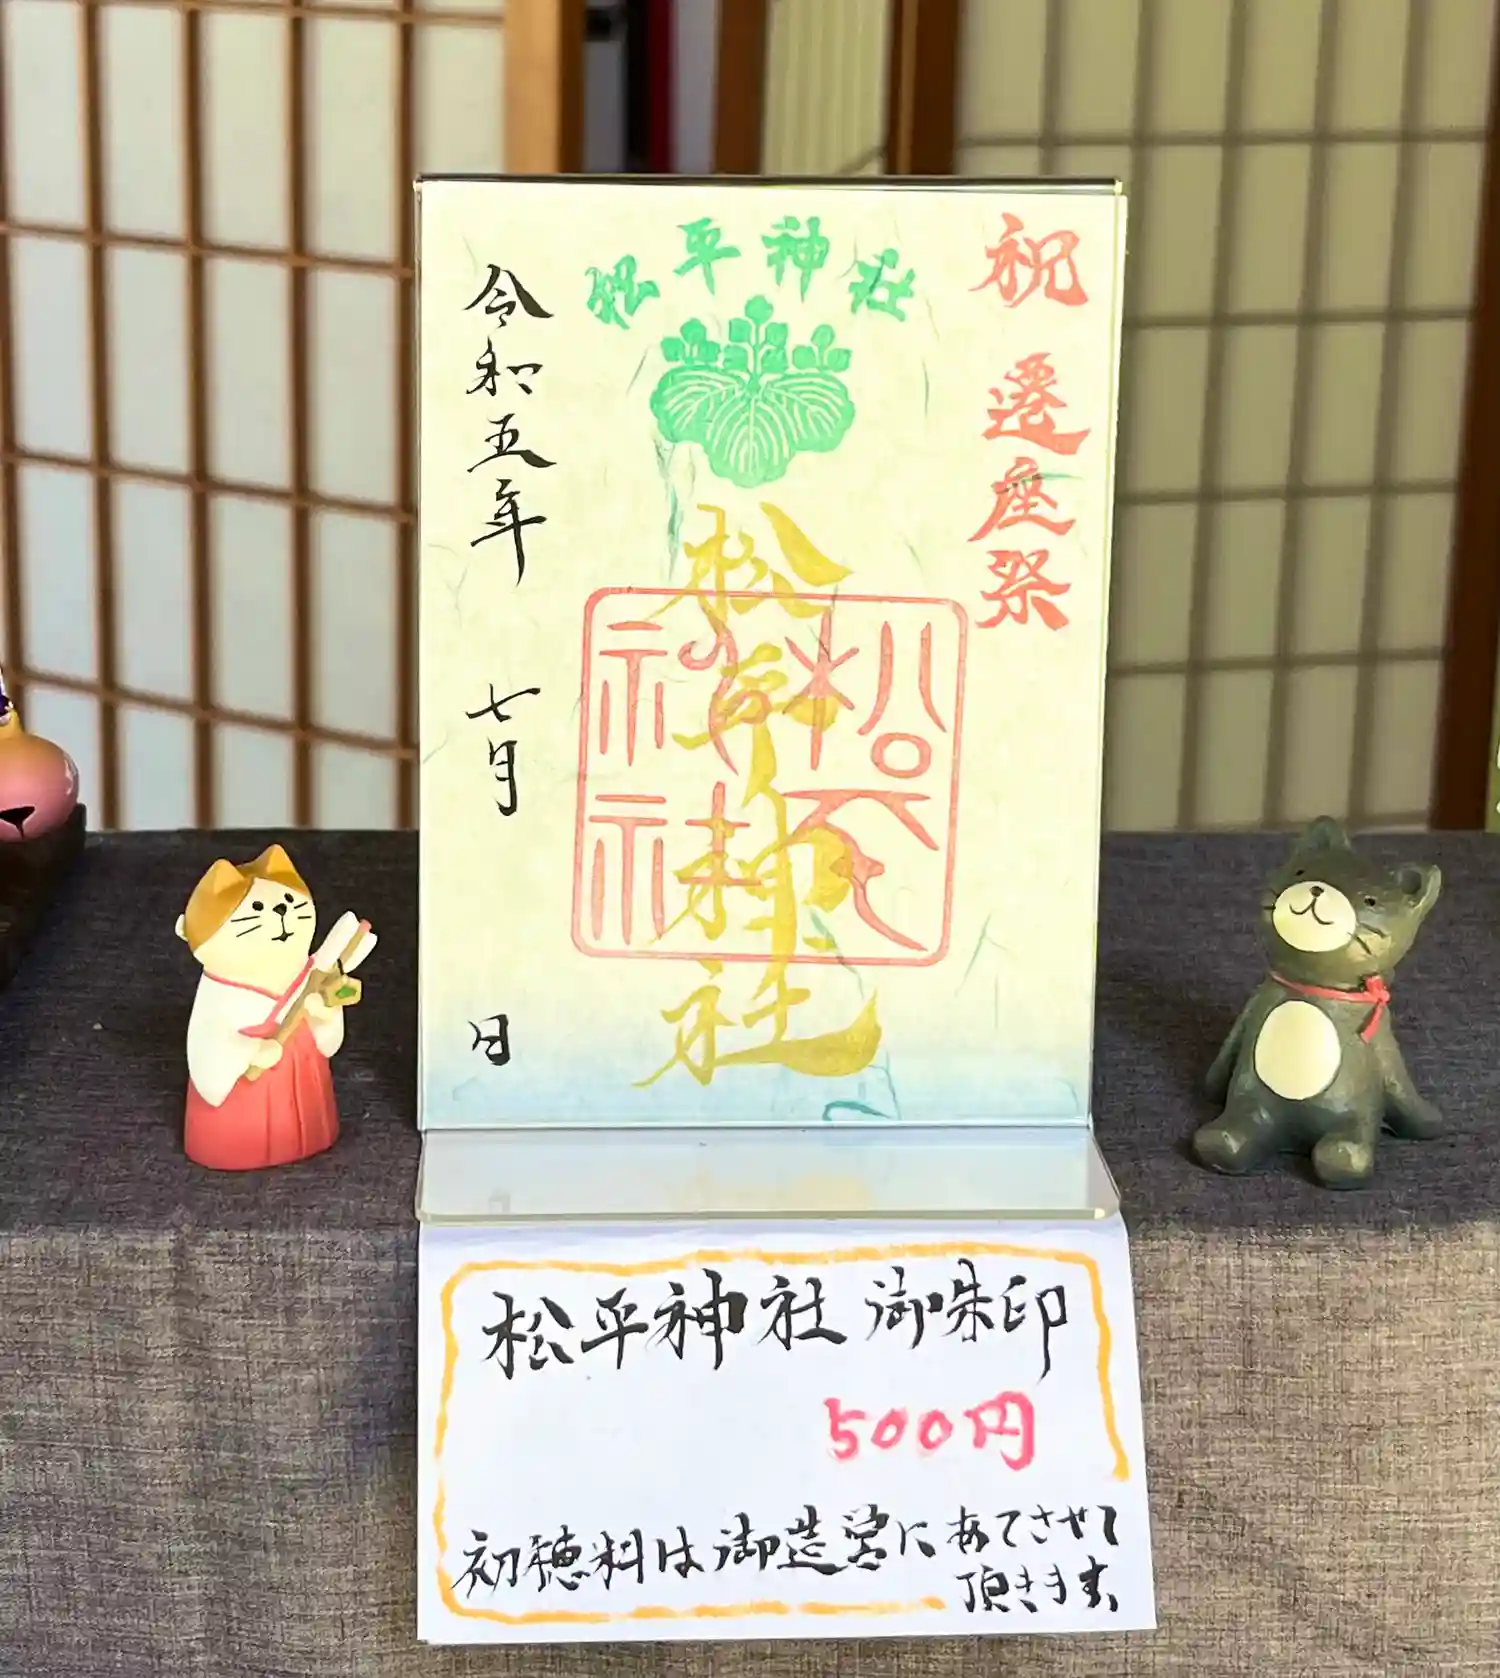 祝 遷座祭
松平神社
松平神社
松平神社
令和五年 七月 日
松平神社 御朱印
500円
初穂料は御造営にあてさせて
頂きます。